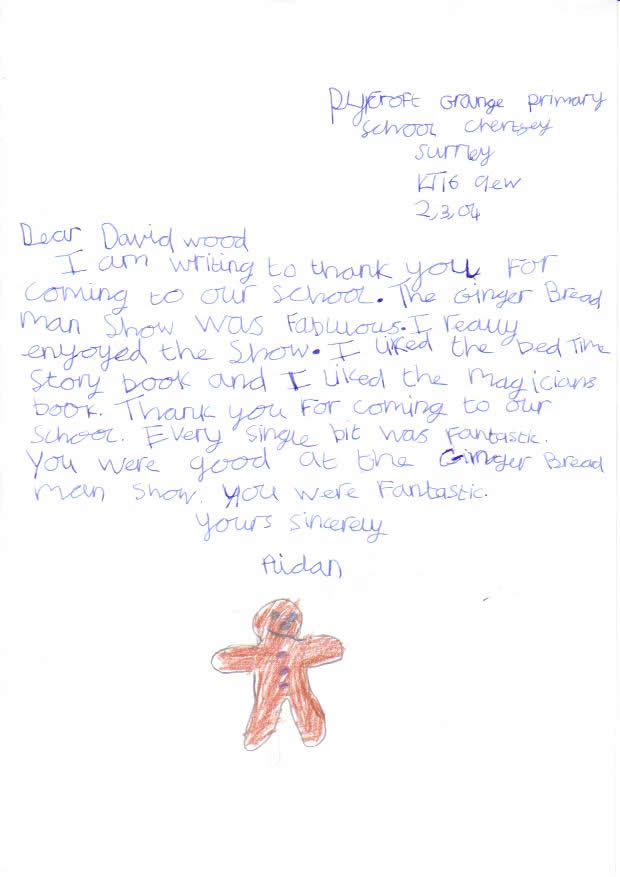 Pycroft Grange primary
School chertsey
Surrey
KT16 9ew
2,3,04
Dear David wood
I am writing to thank you For
coming to our School. The Ginger Bread
man Show was Fabluous. I really
enyoyed the Show. I liked the bed Time
Story book and I liked the magicians
book. Thank you For coming to our
School. Every single bit was Fantastic.
You were good at the Ginger Bread
man show. You were Fantastic.
Yours Sincerely
Aidan